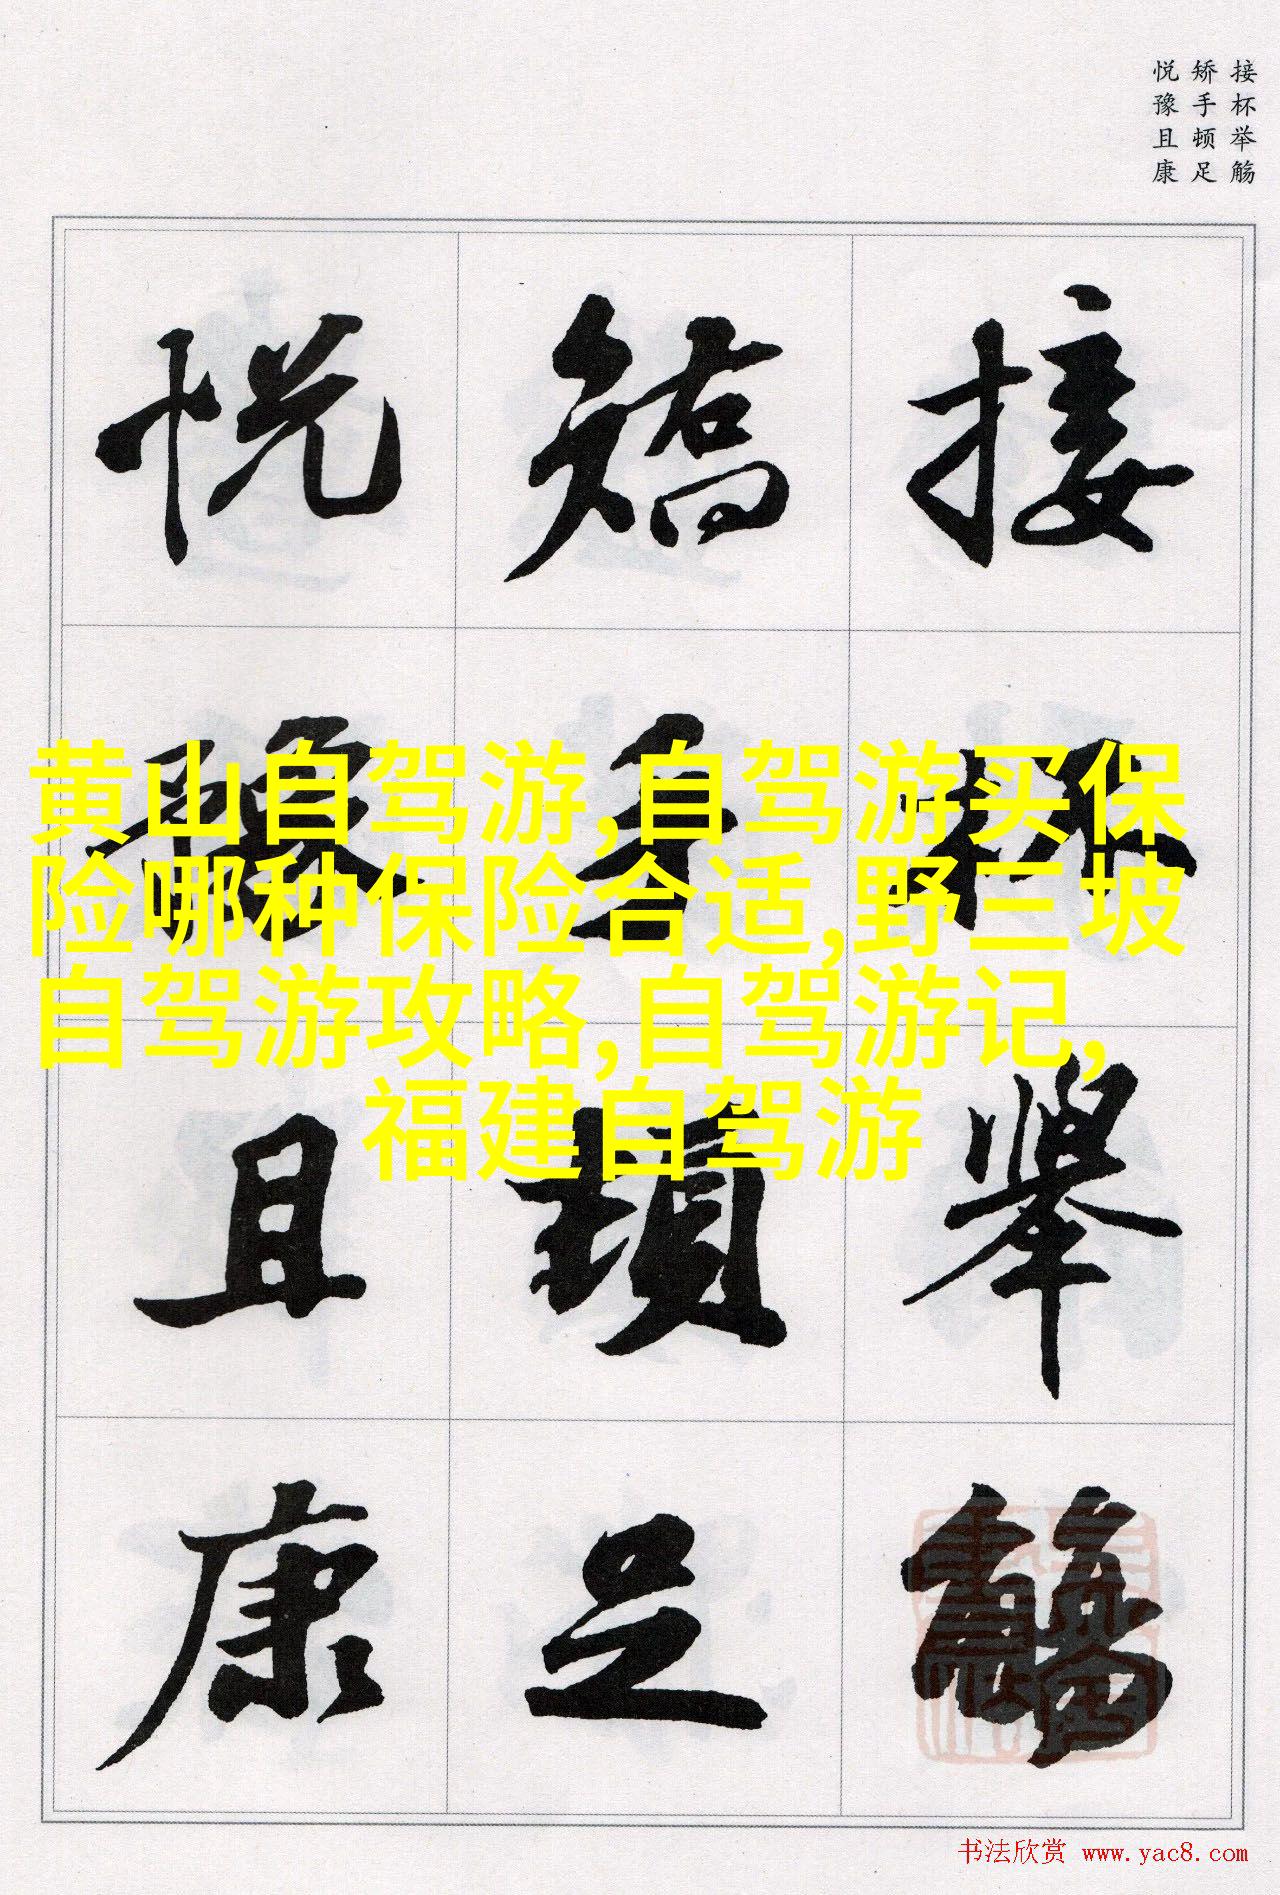 接杯举觞
矫手顿足
悦豫且康
接杯举觞
矫手顿足
悦豫且康
黄山自驾游,自驾游买保
险哪种保险合适,野三坡
自驾游攻略,自驾游记,
福建自驾游
书法欣赏 www.yac8.com